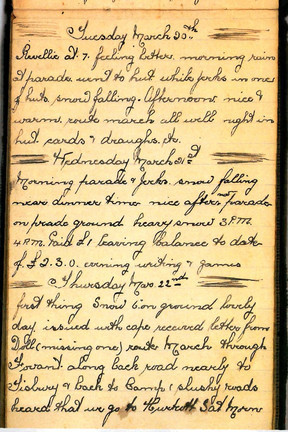 Tuesday March 20th
Revellie at 7. feeling better. morning rain
at parade went to hut while jerks in one
of huts, snow falling. Afternoon nice &
warm. route march all well night in
hut. cards & draughts. etc.
Wednesday March 21st
Morning parade & Jerks. snow falling
near dinner time nice aftern parade
on prade ground heavy snow 3 P.M.
4 P.M. Paid £1 leaving balance to date
of £2.3.0. evening writing & games
Thursday Mar. 22nd
first thing Snow 6in ground lovely
day. issued with cape received letter from
Doll (missing one) route March through
Fovant. along back road nearly to
Tisbury & back to Camp (slushy roads
heard that we go to Hurdcott Sat Morn